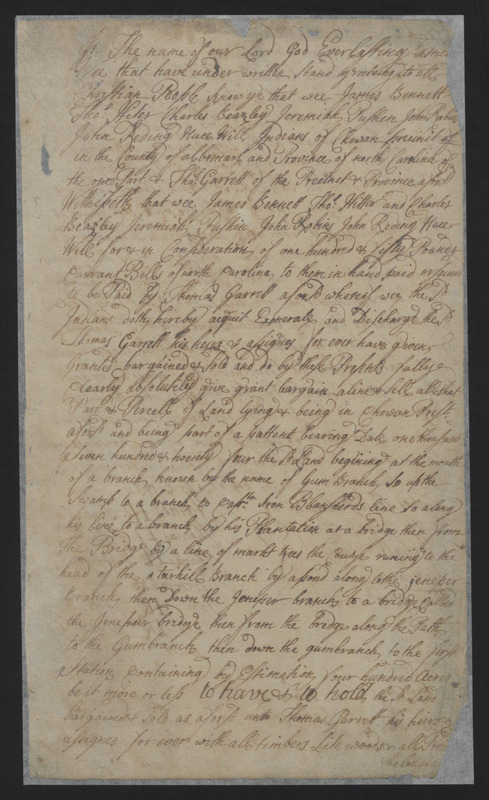 The name of our Lord God Everlasting
that have under written Stand
Christian People Know ye that wee James Bennett
Thos Hiter Charles Beazley Jeremiah Pushen John Robins
John Reding Nuce Will Indians of Chowan precinct of
in the County of albemarl and Province of north Carolina of
the one Part & Thos Garrett of the Precinct & Province afors
Witnesseth that wee James Bennett Thos Hitter and Charles
Beazley Jeremiah Puskin John Robins John Reding Nuce
Will for & in Consideration of one hundred & fifty Pounds
Currant Bills of north Carolina to them in hand paid or
to be Paid By Thomas Garrett aforsd whereof wee the Sd
Indians doth hereby acquit Exonerate and Discharge the Sd
Thomas Garrett his heirs & assignes for ever have given
Granted bargained & Sold and do by these Presents fully
Clearly absolutely give grant bargain aline & sell all that
Part & Percell of Land lying & being in Chowan Prest
aforsd and being part of a pattent bearing Date one thousand
Seven hundred & twenty four the Sd Land begining at the mouth
of a branch known by the name of Gum Branch, So up the
Swamp to a branch to Captn Aron Blansherds line so along
his line to a branch by his Plantation at a bridge then from
the Bridge by a line of markt trees the runing to the
head of the Starkill Branch by a pond along to the Jeneper
branch then Down the Jeneper branch to a bridge Called
the Jenepour bridge then from the bridge along the Path
to the Gumbranch, then down the gumbranch to the first
Station Containing by Estimation four hundred Acres
be it more or less to have & to hold, the Sd Land
bargained & Sold as aforsd unto Thomas Garrett his heires &
assignes for ever with all timbers Like woods & all
belonging